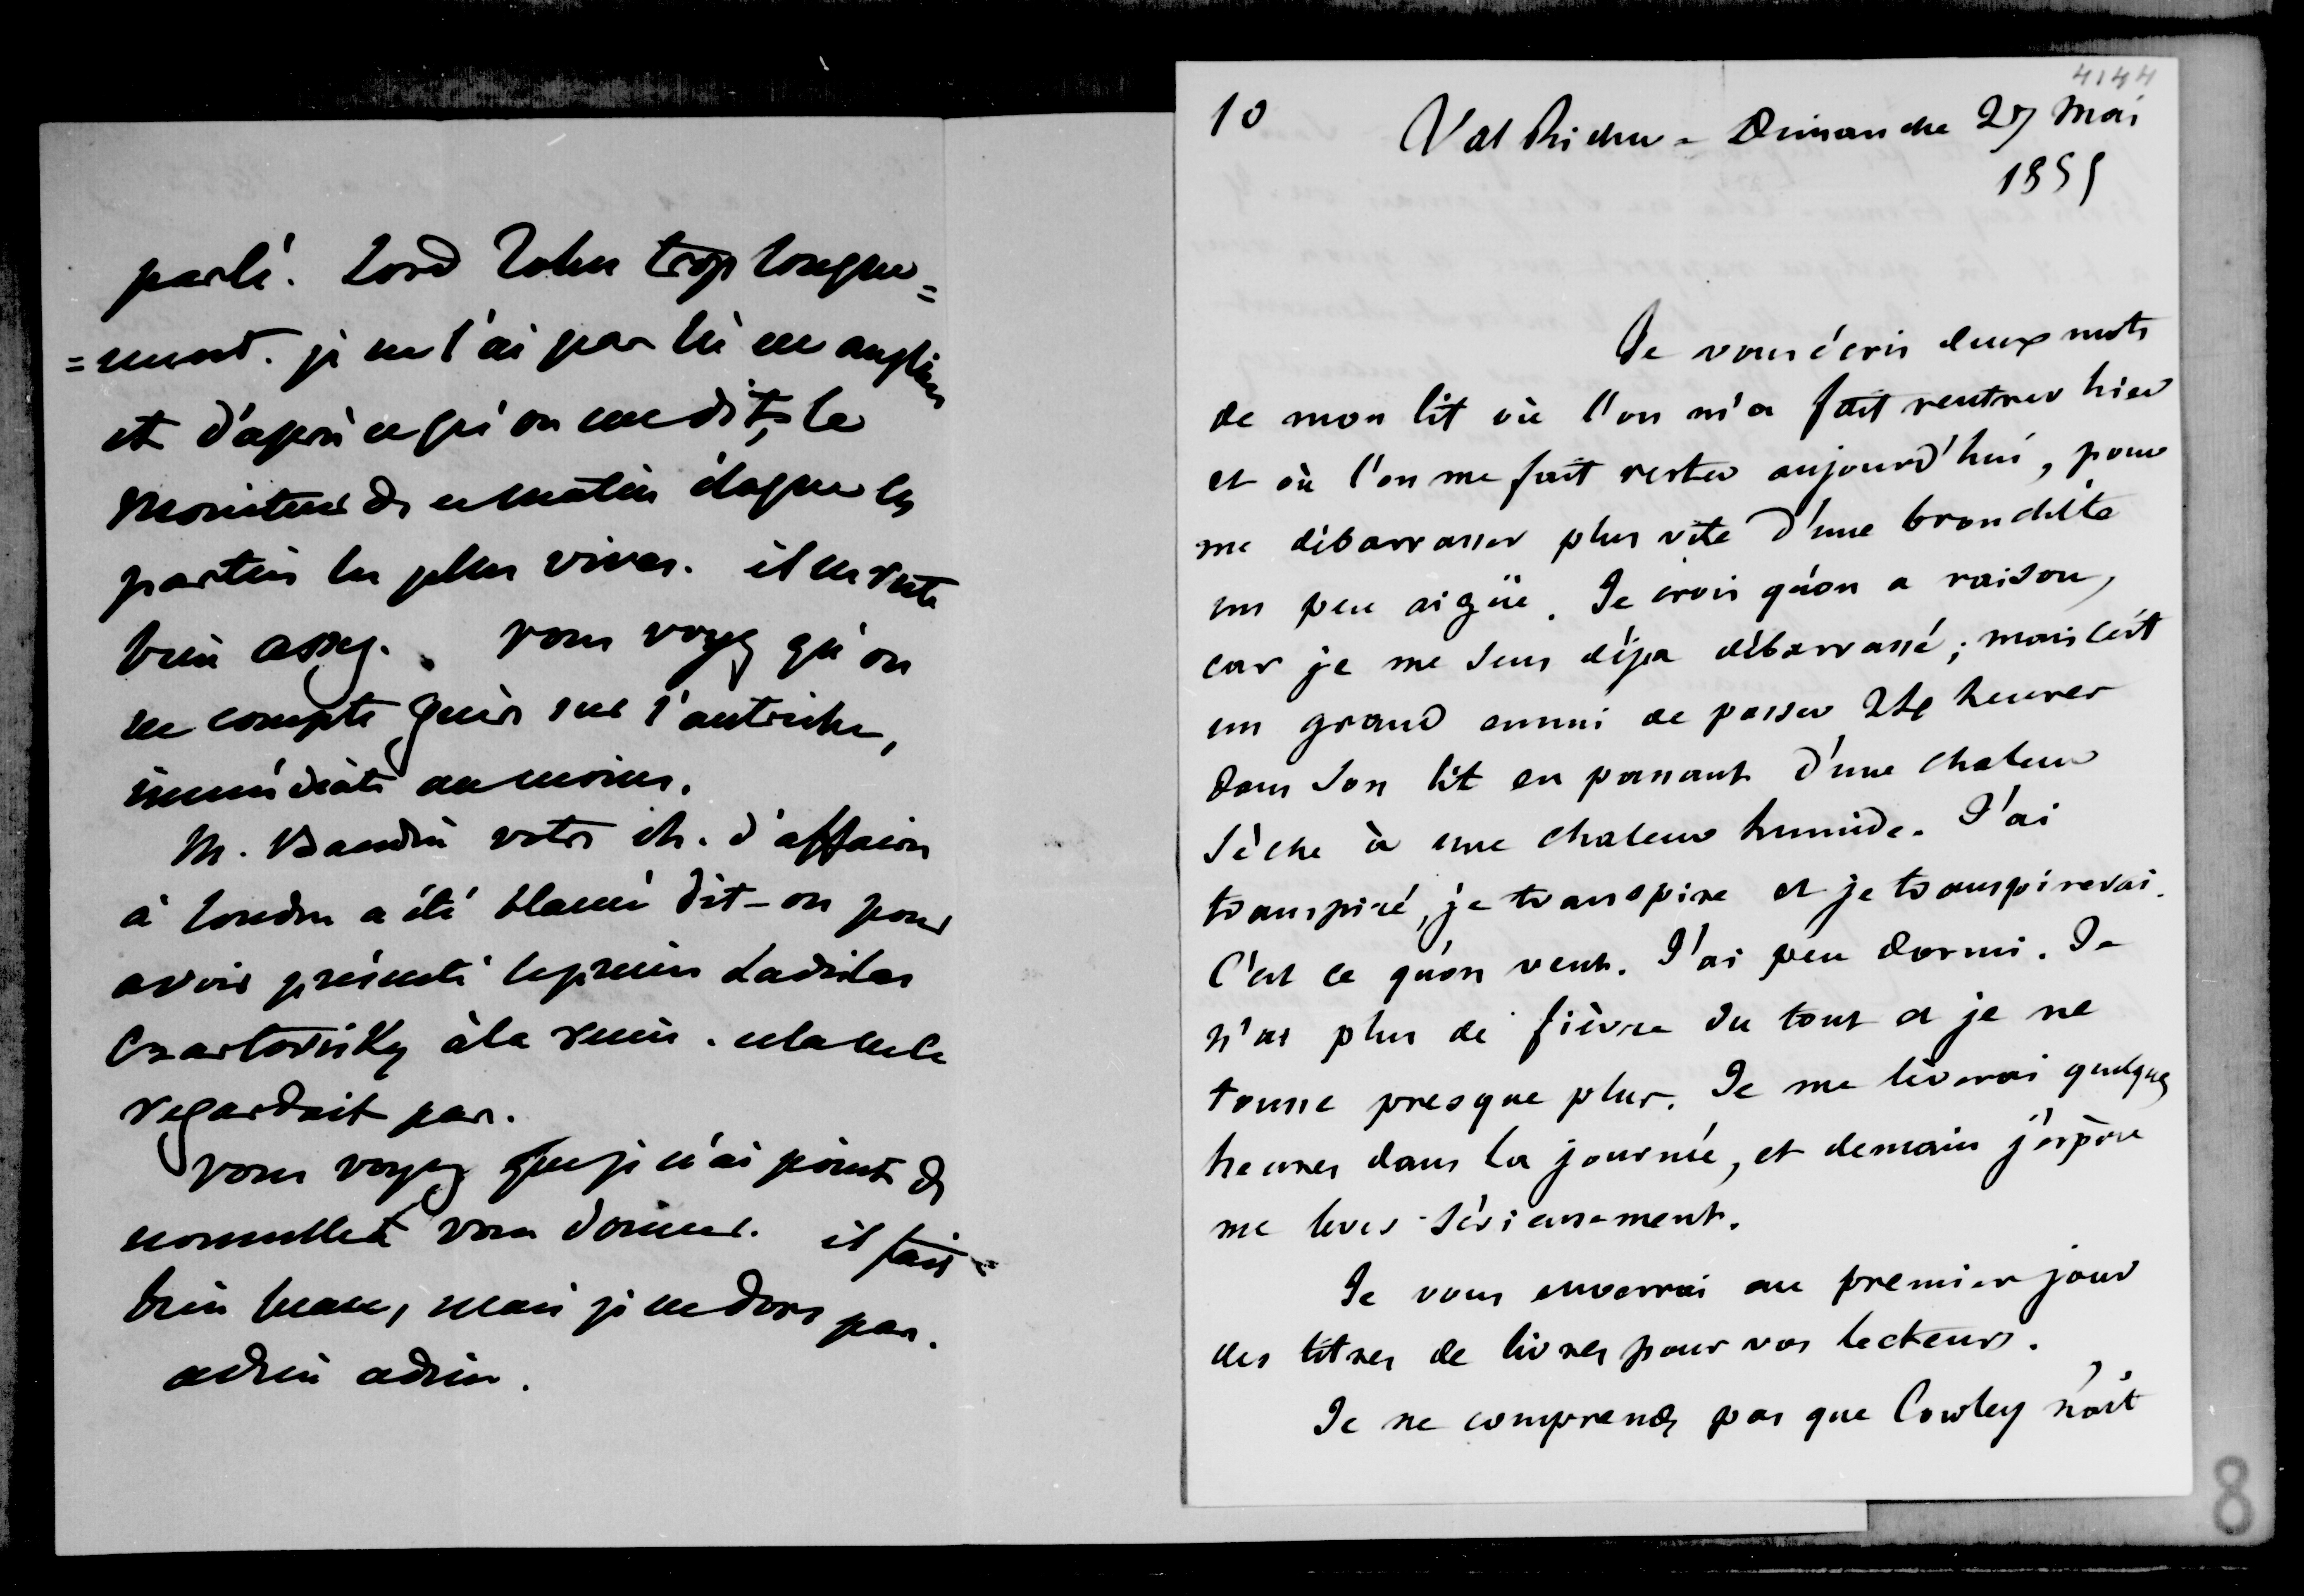 parlé. Lord John trop longue=
=ment. je ne l'ai pas lu en anglais
et d'après ce qu'on me dit, le
Moniteur de ce matin élague les
parties les plus vives. il en reste
bien assez. vous voyez qu'on
ne compte guère sur l'autriche,
immédiate au moins.
M. Baudin votre ch. d'affaires
à Londres a été blamé dit-on pour
avoir présenté le prince Ladislas
Czartorisky à la reine. cela ne le
regardait pas.
vous voyez que je n'ai point de
nouvelles à vous donner. il fait
bien beau, mais je ne dors pas.
adieu adieu.
4144
10
Val Richer = Dimanche 27 Mai
1855
Je vous écris deux mots
de mon lit où l'on m'a fait rentrer hier
et où l'on me fait rester aujourd'hui, pour
me débarrasser plus vite d'une bronchite
un peu aigüe. Je crois qu'on a raison,
car je me sens déja débarrassé ; mais c'est
un grand ennui de passer 24 heures
dans son lit en passant d'une chaleur
sèche à une chaleur humide. J'ai
transpiré, je transpire et je transpirerai.
C'est ce qu'on veut. J'ai peu dormi. Je
n'ai plus de fièvre du tout et je ne
tousse presque plus. Je me leverai quelques
heures dans la journée, et demain j'espère
me lever sérieusement.
Je vous enverrai au premier jour
des titres de livres pour vos lecteurs.
Je ne comprends pas que Cowley n'ait
8